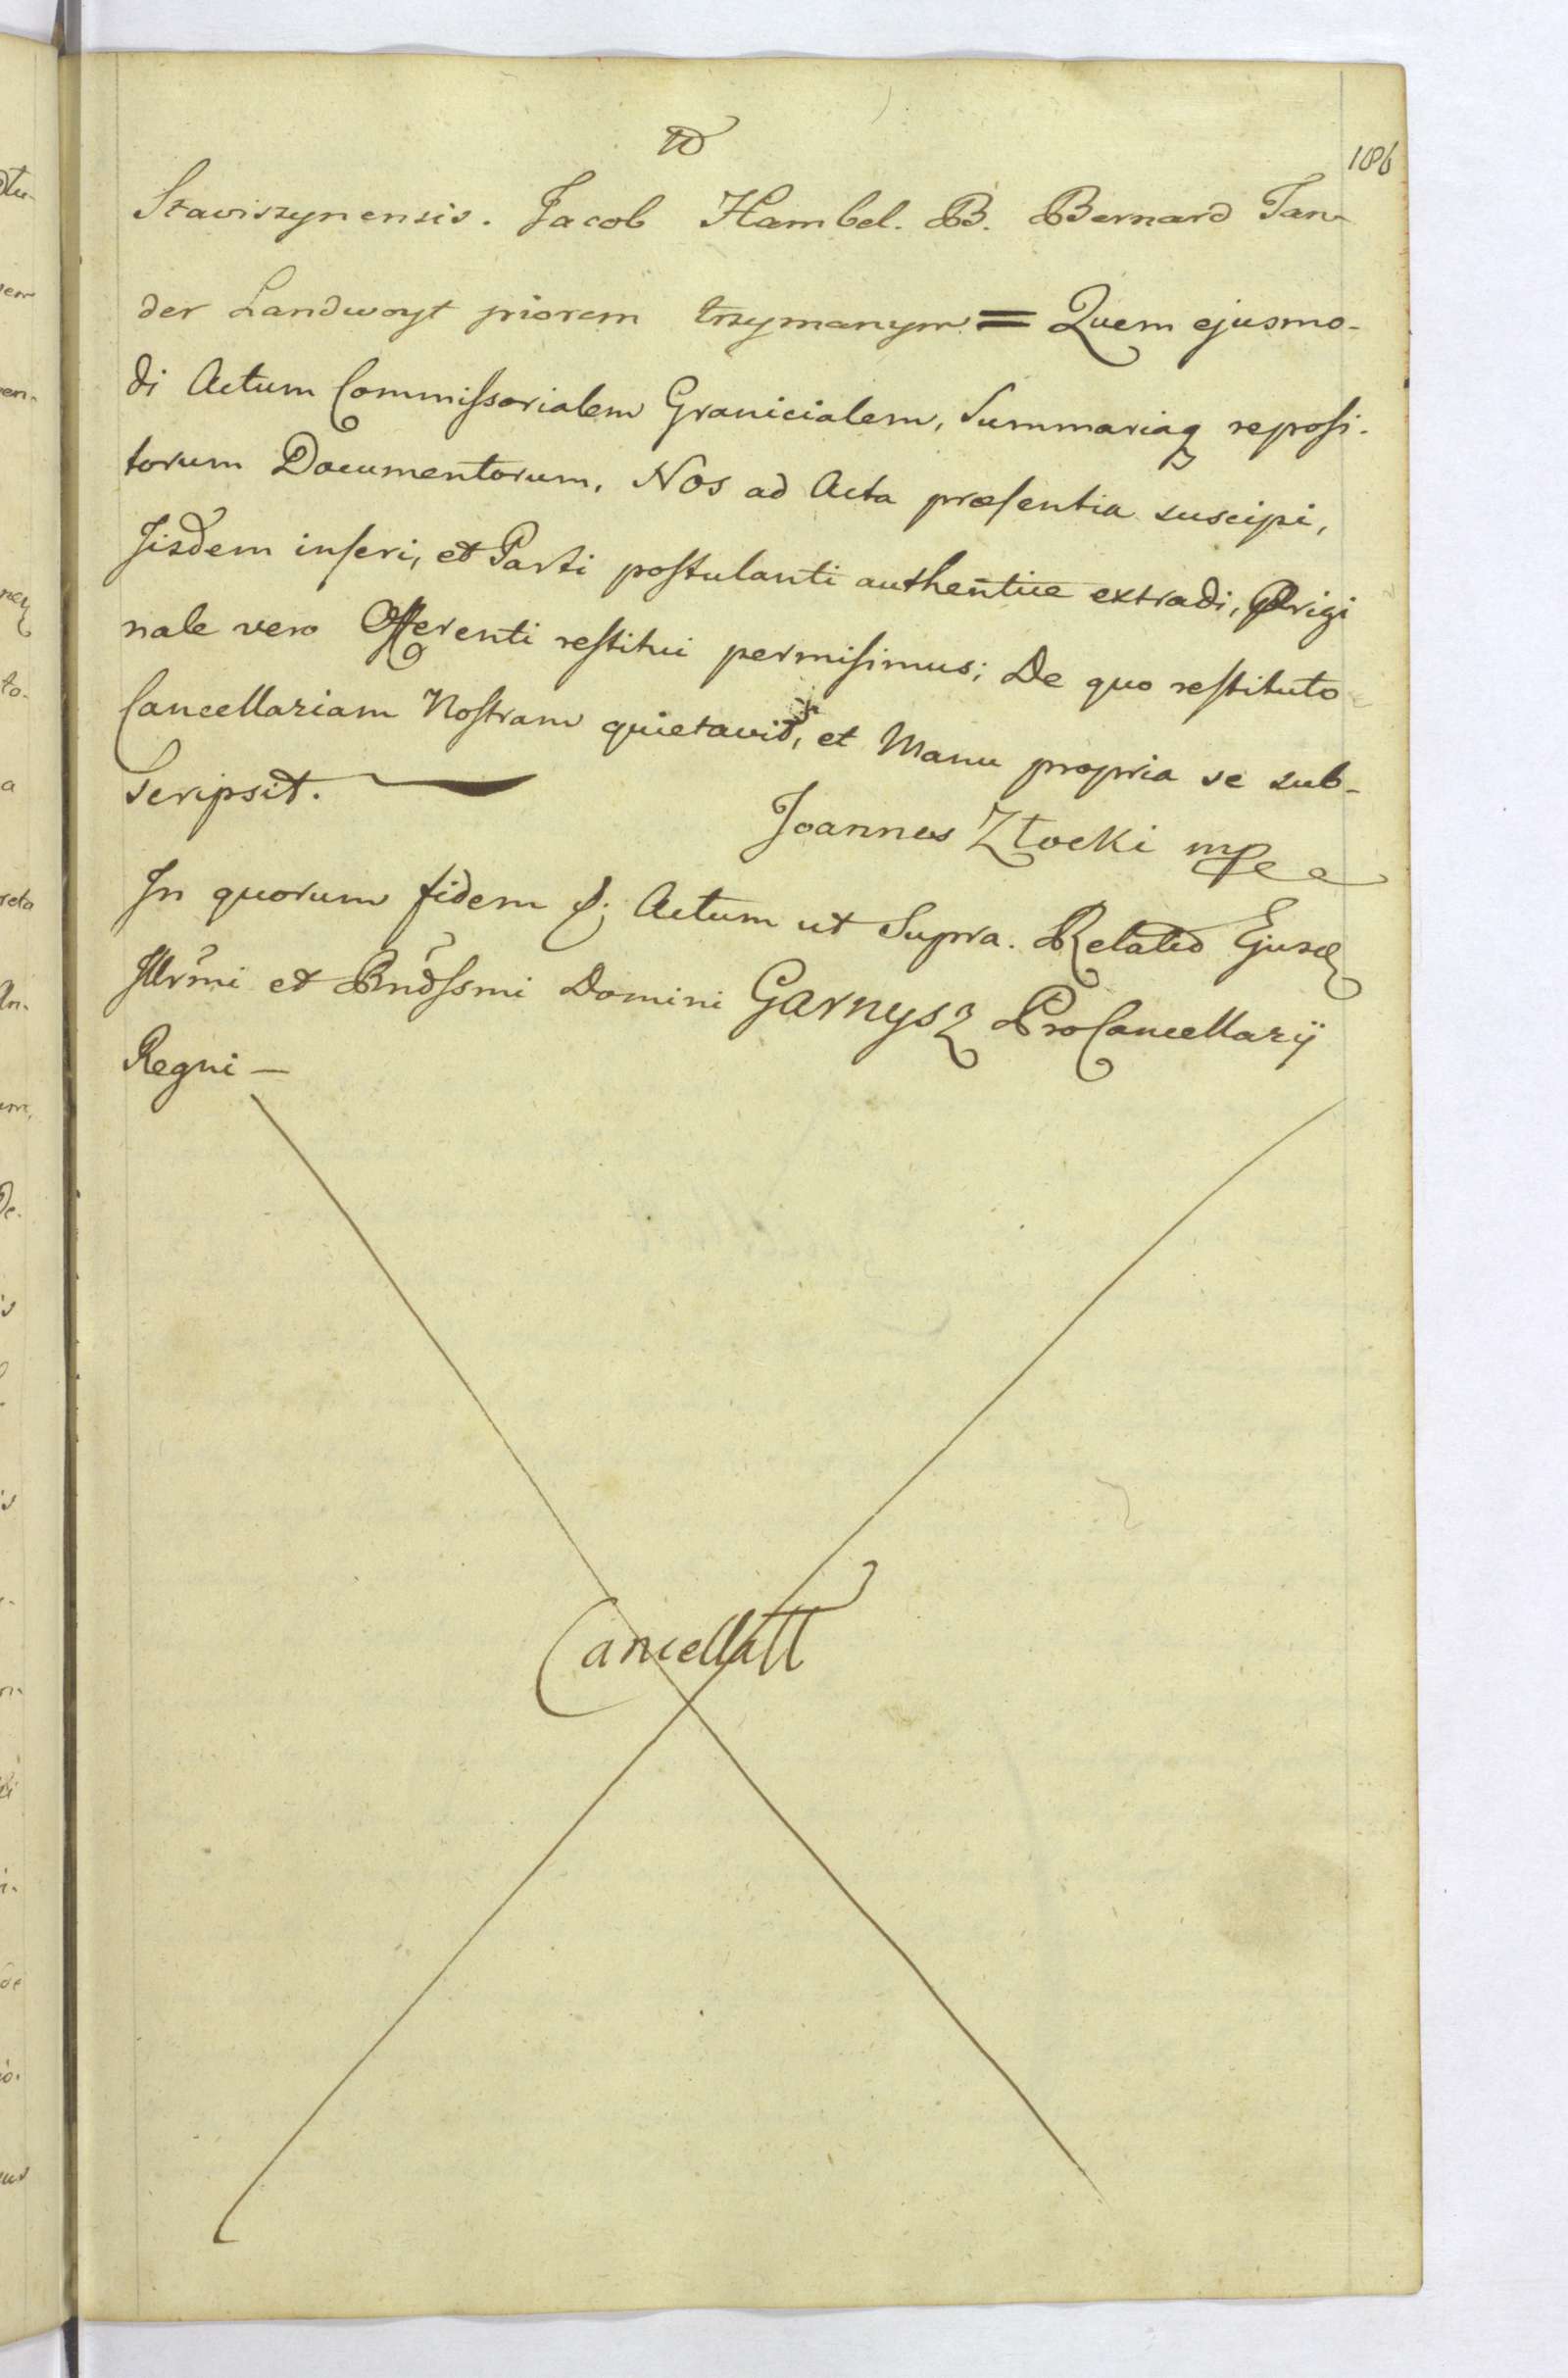 186
Stawiszynensis. Jacob Hambel. B. Bernard Tan-
der Landwoyt piorem trzymanym = Quem ejusmo-
di Actum Commissorialem Granicialem, Summariaq reposi-
torum Documentorum, Nos ad Acta præsentia suscipi,
Jisdem inseri, et Parti postulanti authentice extradi, Origi
nale vero Offerenti restitui permisimus; De quo restituto
Cancellariam Nostram quietavit, et Manu propria se sub-
scripsit.
Joannes Złocki mp
In quorum fidem &; Actum ut Supra. Relatio Ejusd
Illrmi et Rndssmi Domini Garnysz ProCancellarij
Regni —
Cancellatt